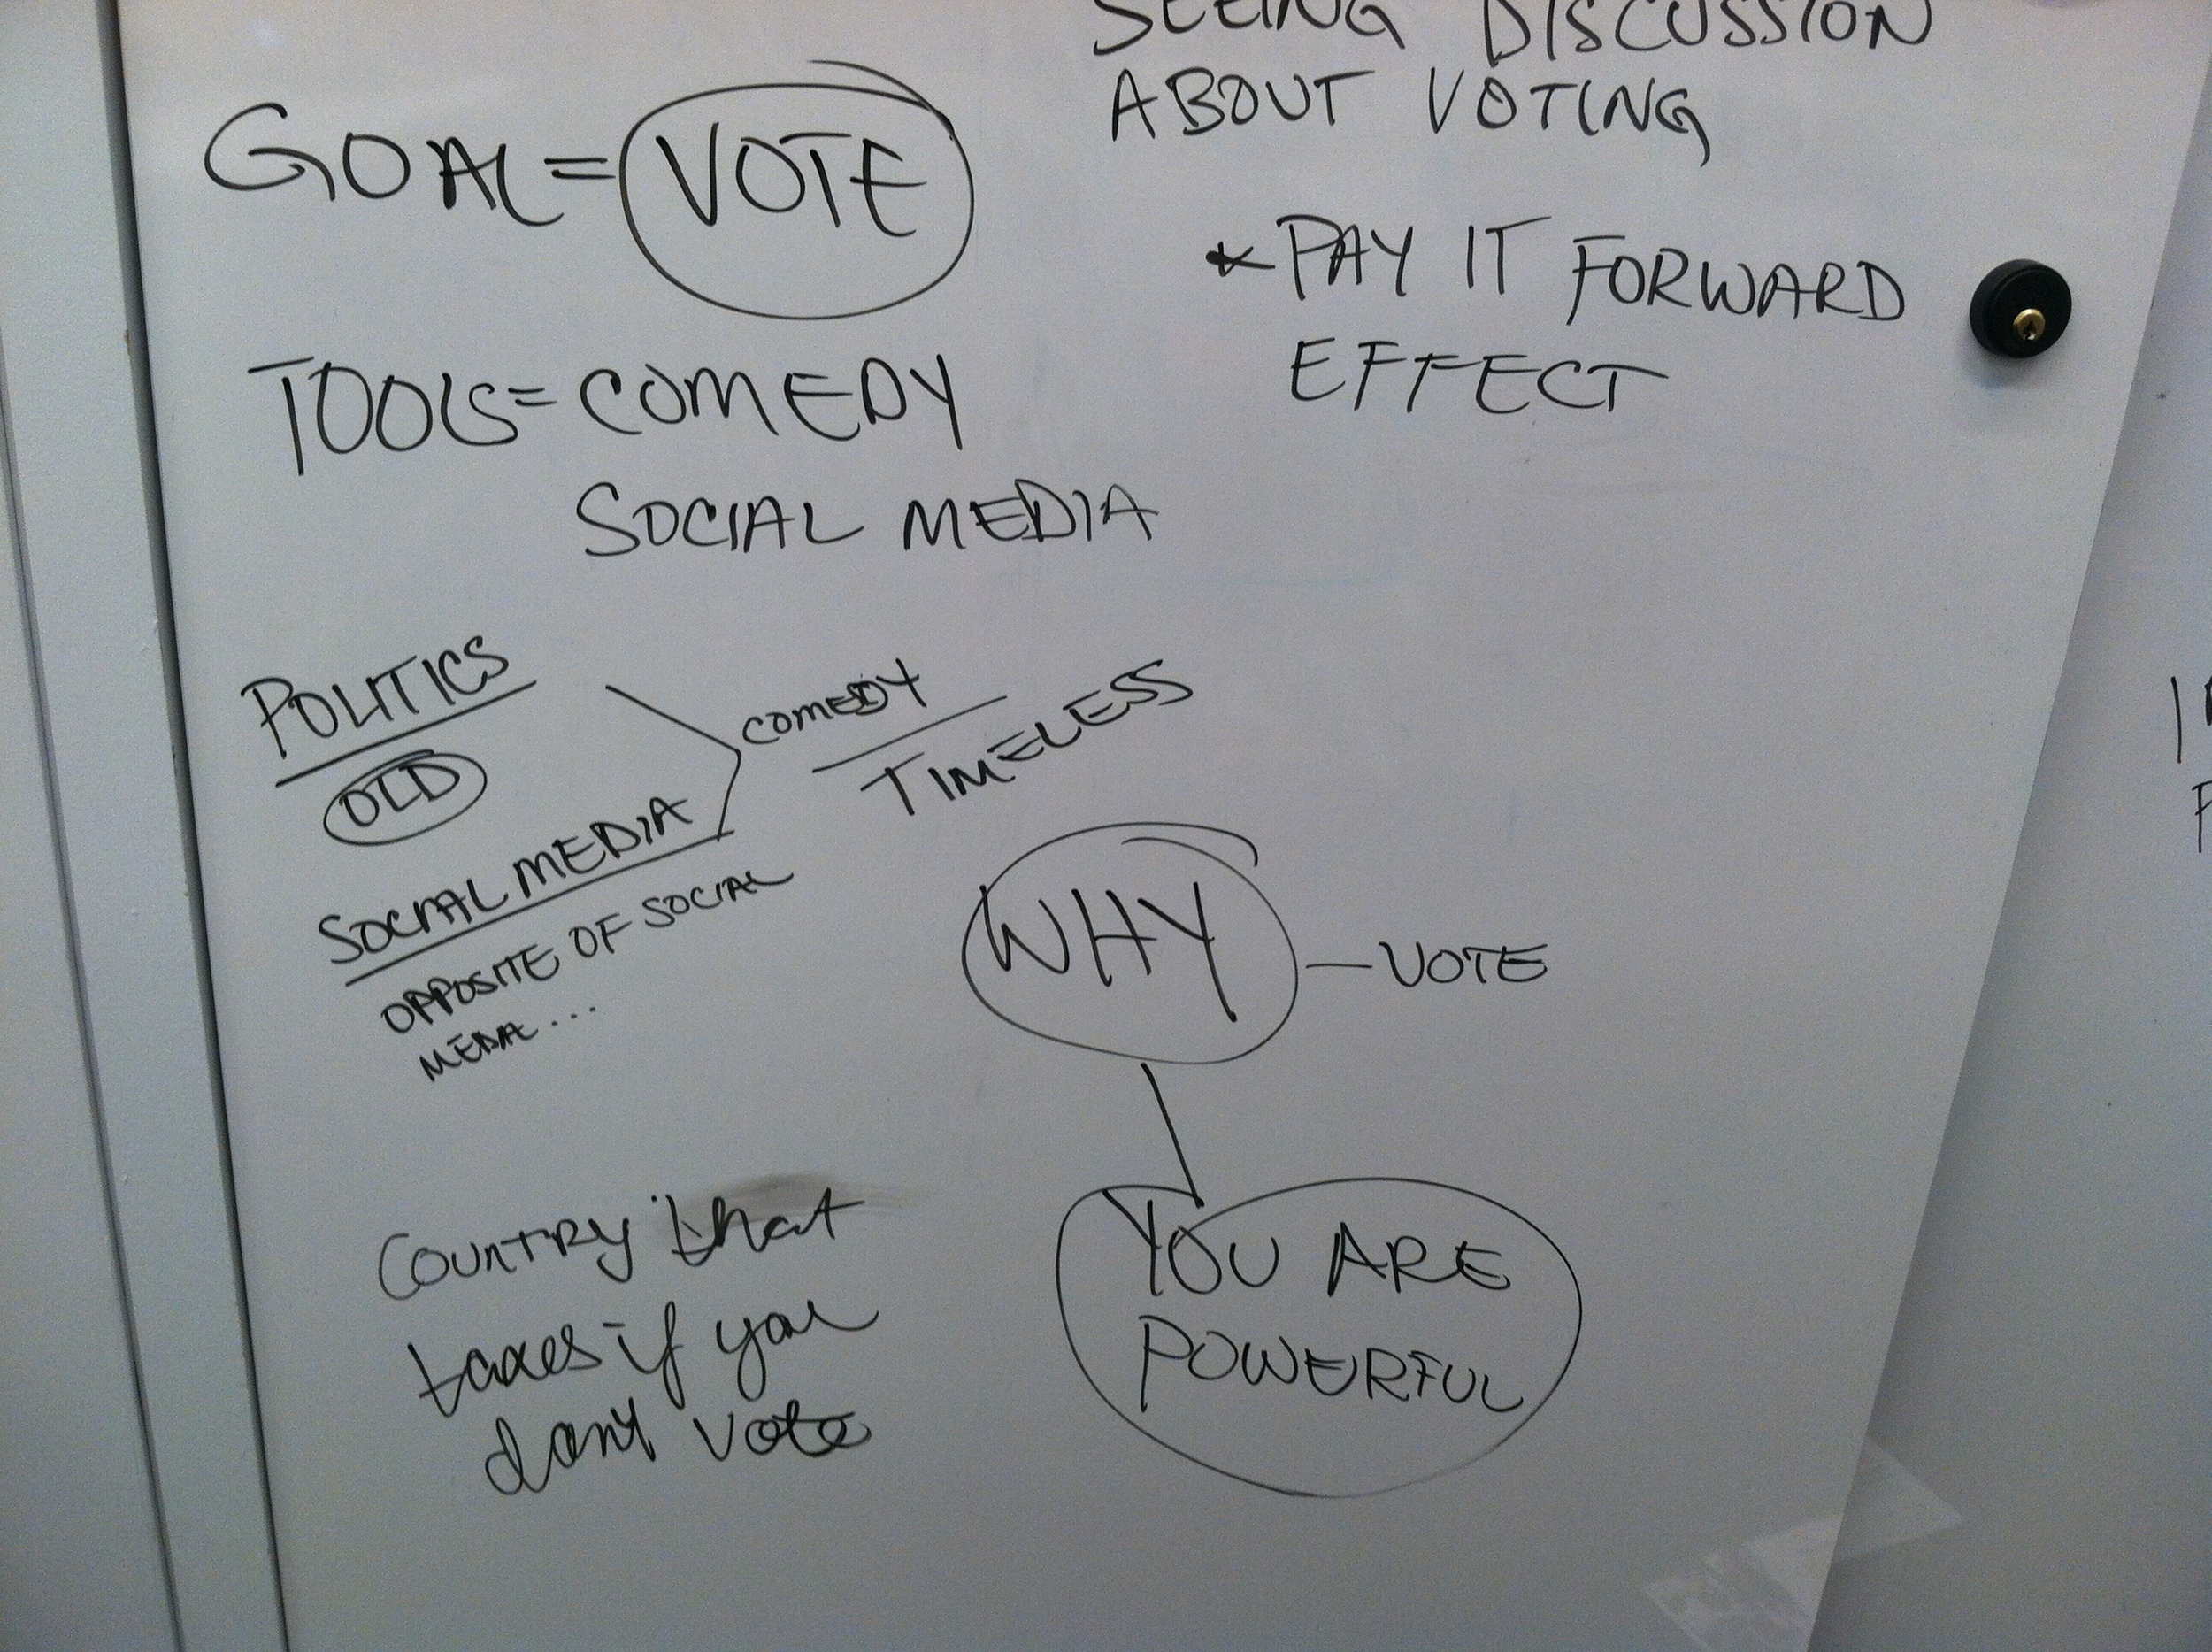 GOAL = VOTE
TOOLS = COMEDY
SOCIAL MEDIA
SEEING DISCUSSION
ABOUT VOTING
* PAY IT FORWARD
EFFECT
POLITICS
OLD
SOCIAL MEDIA
OPPOSITE OF SOCIAL
MEDIA...
COMEDY
TIMELESS
WHY — VOTE
YOU ARE
POWERFUL
COUNTRY that
taxes if you
dont vote